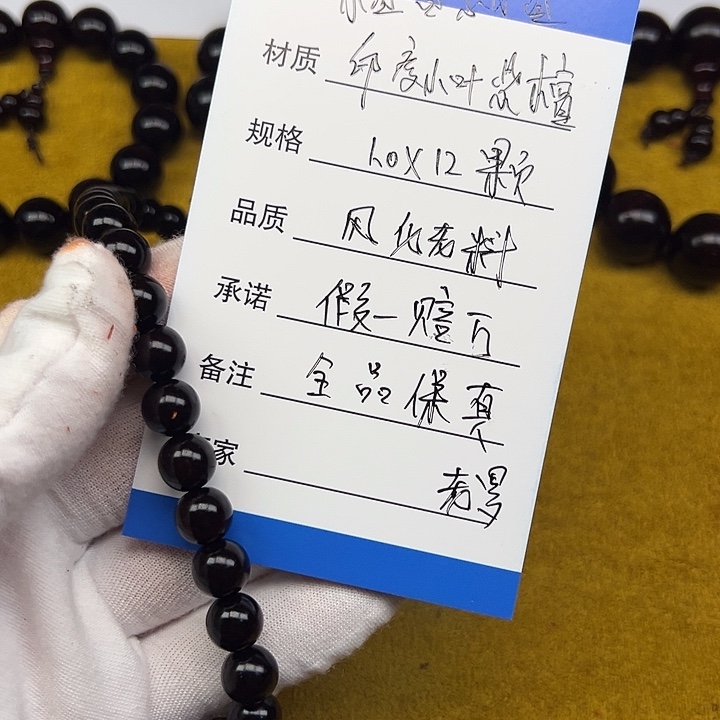 材质 印度小叶紫檀
规格 1.0X12颗
品质 风化老料
承诺 假一赔万
备注 全品保真
家